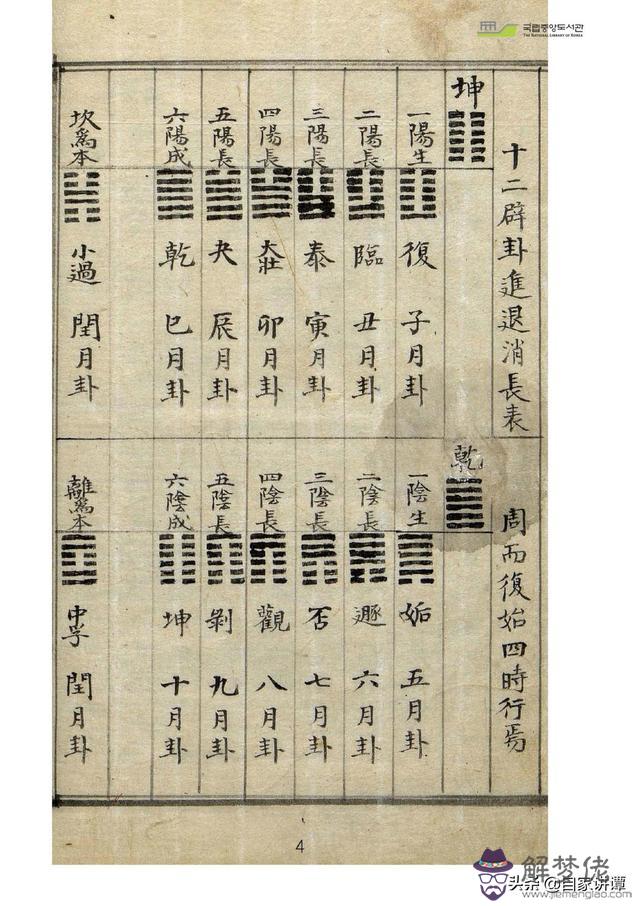 국립중앙도서관
THE NATIONAL LIBRARY OF KOREA
十二辟卦進退消長表 周而復始四時行焉
坤
一陽生 復 子月卦
二陽長 臨 丑月卦
三陽長 泰 寅月卦
四陽長 大壯 卯月卦
五陽長 夬 辰月卦
六陽成 乾 巳月卦
坎爲本 小過 閏月卦
乾
一陰生 姤 五月卦
二陰長 遯 六月卦
三陰長 否 七月卦
四陰長 觀 八月卦
五陰長 剝 九月卦
六陰成 坤 十月卦
離爲本 中孚 閏月卦
4
解梦佬
头条 @自家讲谭
www.jiemenglao.com